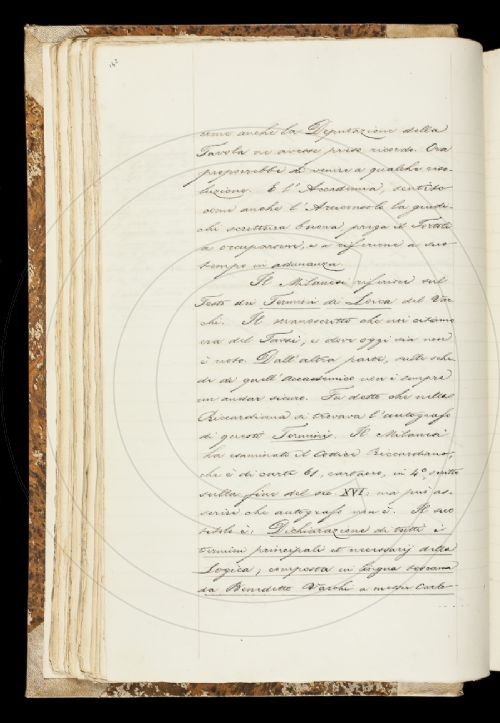 come anche la Deputazione della
Tavola ne avesse preso ricordo. Ora
proporrebbe di venire a qualche riso-
luzione. E l'Accademia, sentito
come anche l'Arciconsolo la giudi-
chi scrittura buona, prega il Tortoli
a occuparsene, e a riferirne a suo
tempo in adunanza.
Il Milanesi riferisce sul
Testo dei Termini di Loica del Var
chi. Il manoscritto che noi citiamo
era del Tassi, e dove oggi sia non
è noto. Dall'altra parte, sulle sche
de di quell'Accademico non è sempre
un andar sicuro. Fu detto che nella
Riccardiana si trovava l'autografo
di questi Termini. Il Milanesi
ha esaminato il Codice Riccardiano,
che è di carte 61, cartaceo, in 4º scritto
sulla fine del sec XVI; ma può as-
serire che autografo non è. Il suo
titolo è: Dichiarazione di tutti i
termini principali et necessarij della
Logica, composta in lingua toscana
da Benedetto Varchi a messer Carlo